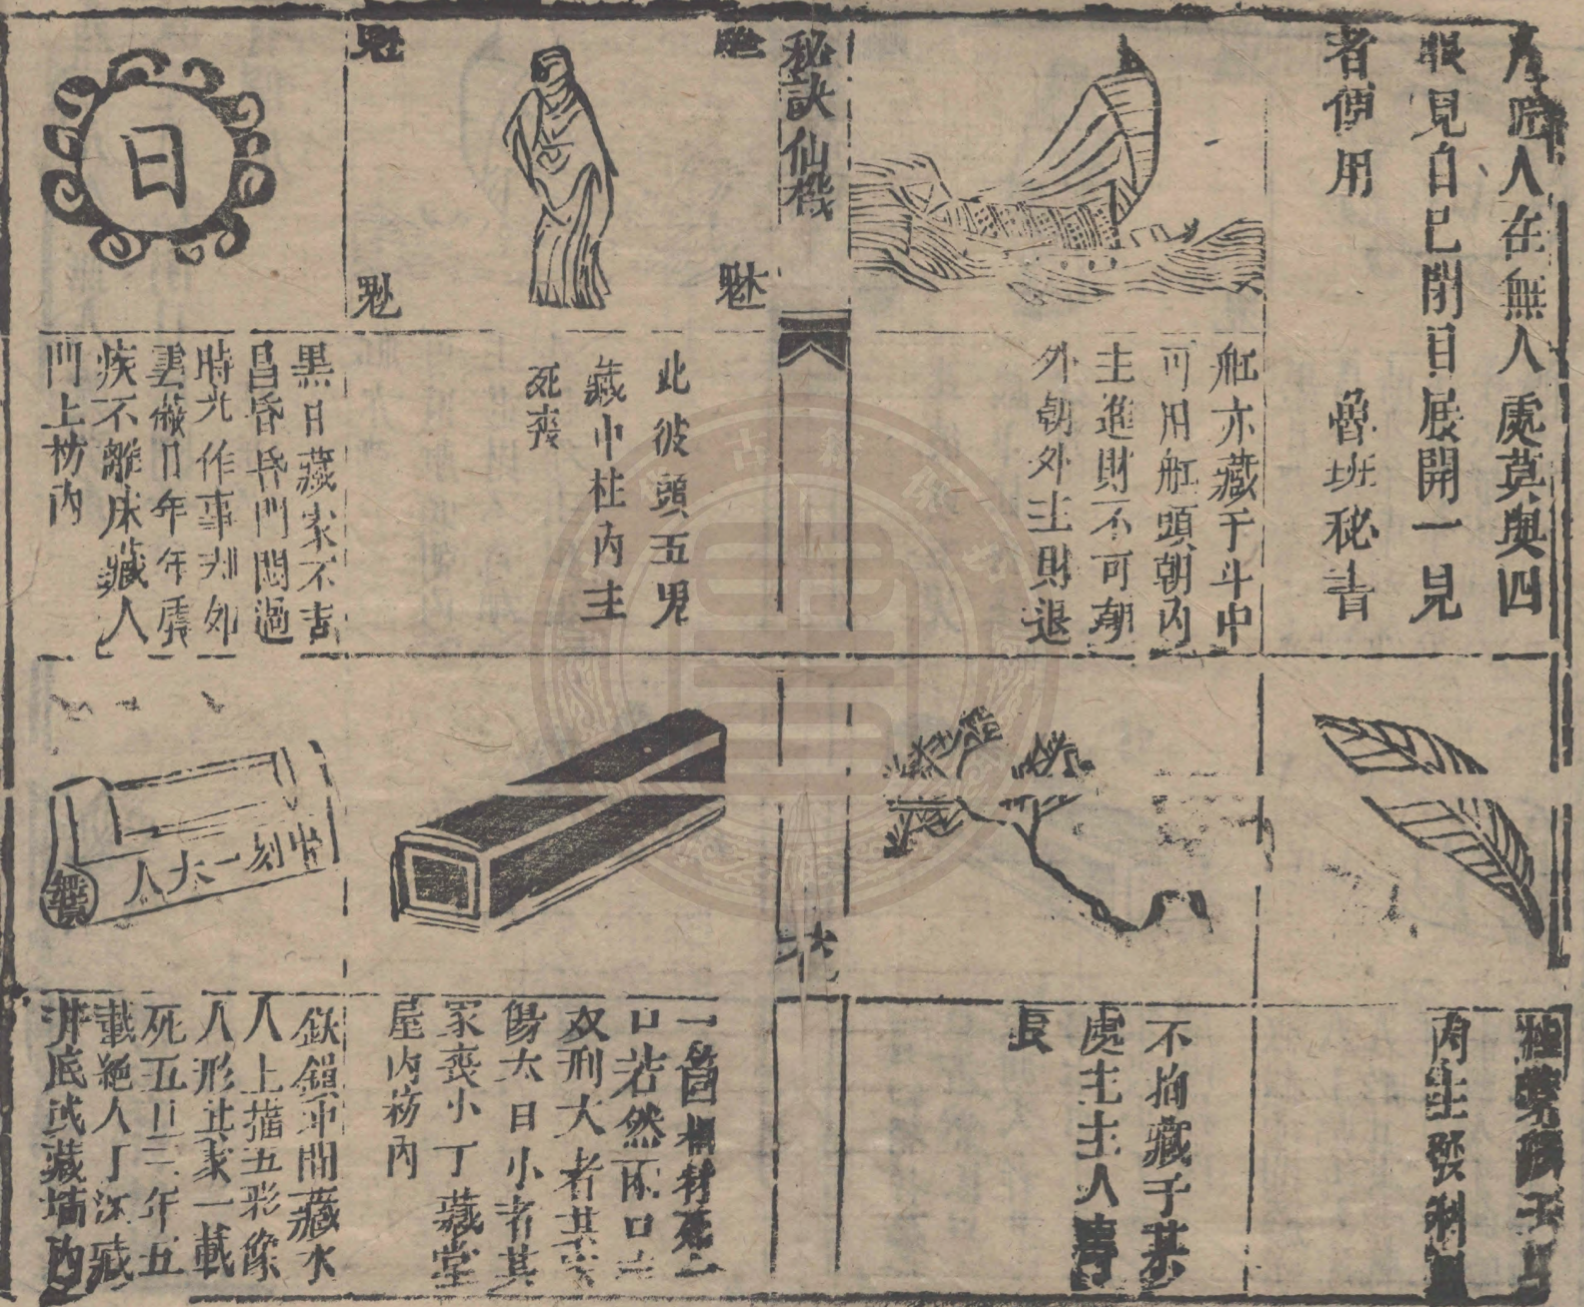 人在無人處莫與四
眼見自己閉目展開一見
者便用
魯班秘書
舡亦藏于斗中
可用舡頭朝內
主進財不可朝
外朝外主財退
桂葉藏于斗
內主發科
不拘藏于某
處主主人壽
長
秘訣仙機
此披頭五鬼
藏中柱內主
死喪
一箇棺材死一
口若然兩口主
双刑大者其家
傷大口小者其
家喪小丁藏堂
屋內枋內
日
黑日藏家不吉
昌昏昏門悶過
時光作事却如
雲蔽日年年虐
疾不離床藏人
門上枋內
中刻一木人
鐵鎖中間藏木
人上描五彩像
人形其家一載
死五口三年五
載絕人丁深藏
井底或藏墻內